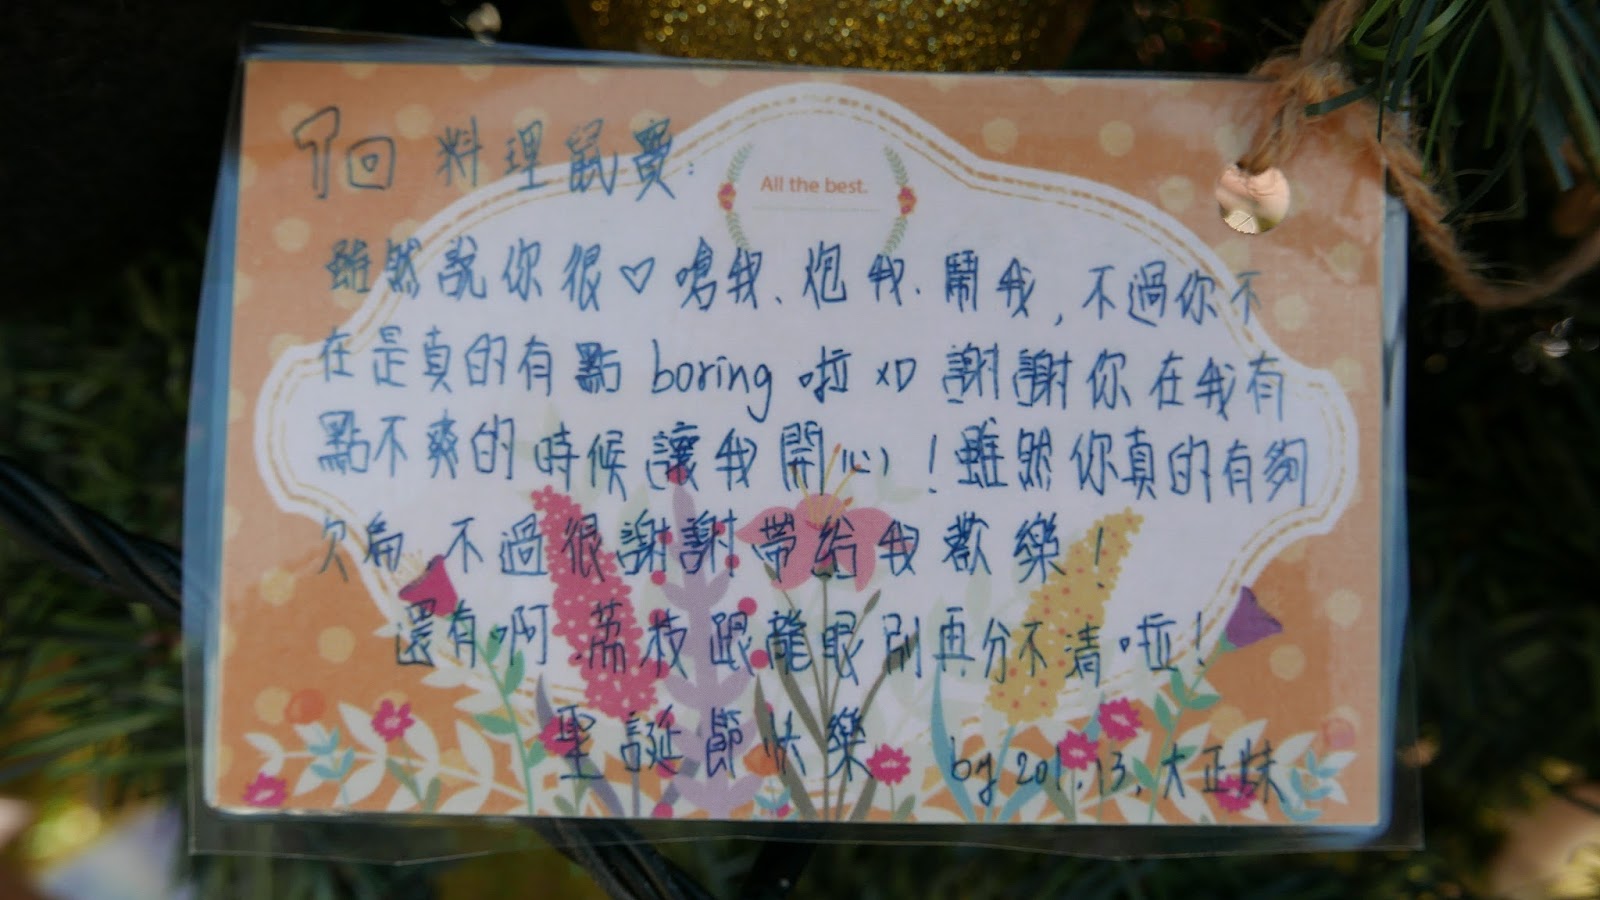 To 料理鼠寶:
All the best.
雖然說你很♡嗆我、炮我、鬧我,不過你不
在是真的有點 boring 啦 XD 謝謝你在我有
點不爽的時候讓我開心!雖然你真的有夠
欠扁,不過很謝謝帶給我歡樂!
還有啊,荔枝跟龍眼別再分不清啦!
聖誕節快樂 by 201.13.大正妹